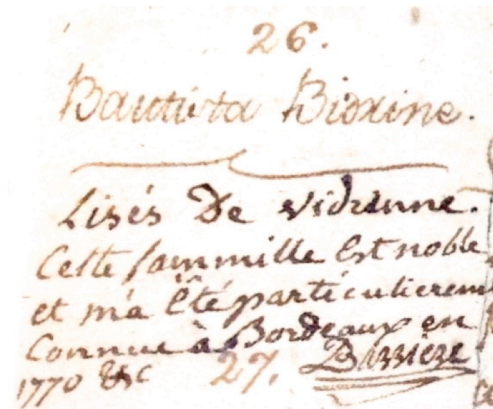 26.
Bautista Bidrine.
Lisés De vidrinne.
Cette fammille Est noble
et m'a Été particulierem
Connue à Bordeaux en
1770 &c 27. Barriere